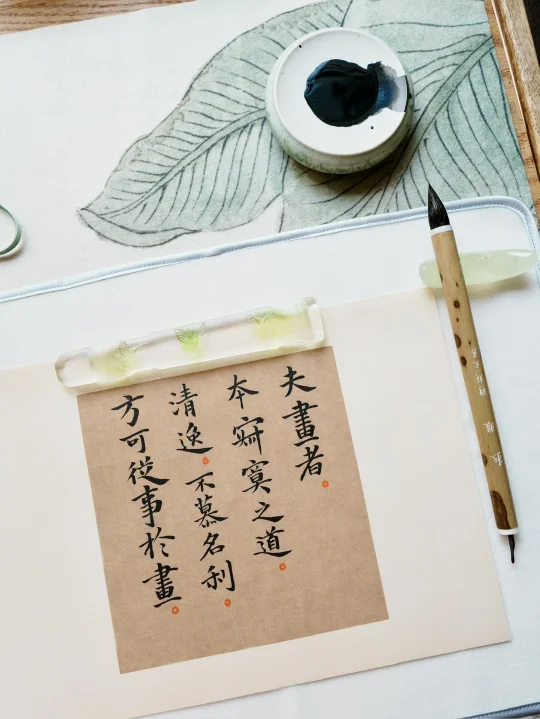 夫畫者。
本寂寞之道。
清逸。不慕名利。
方可從事於畫。